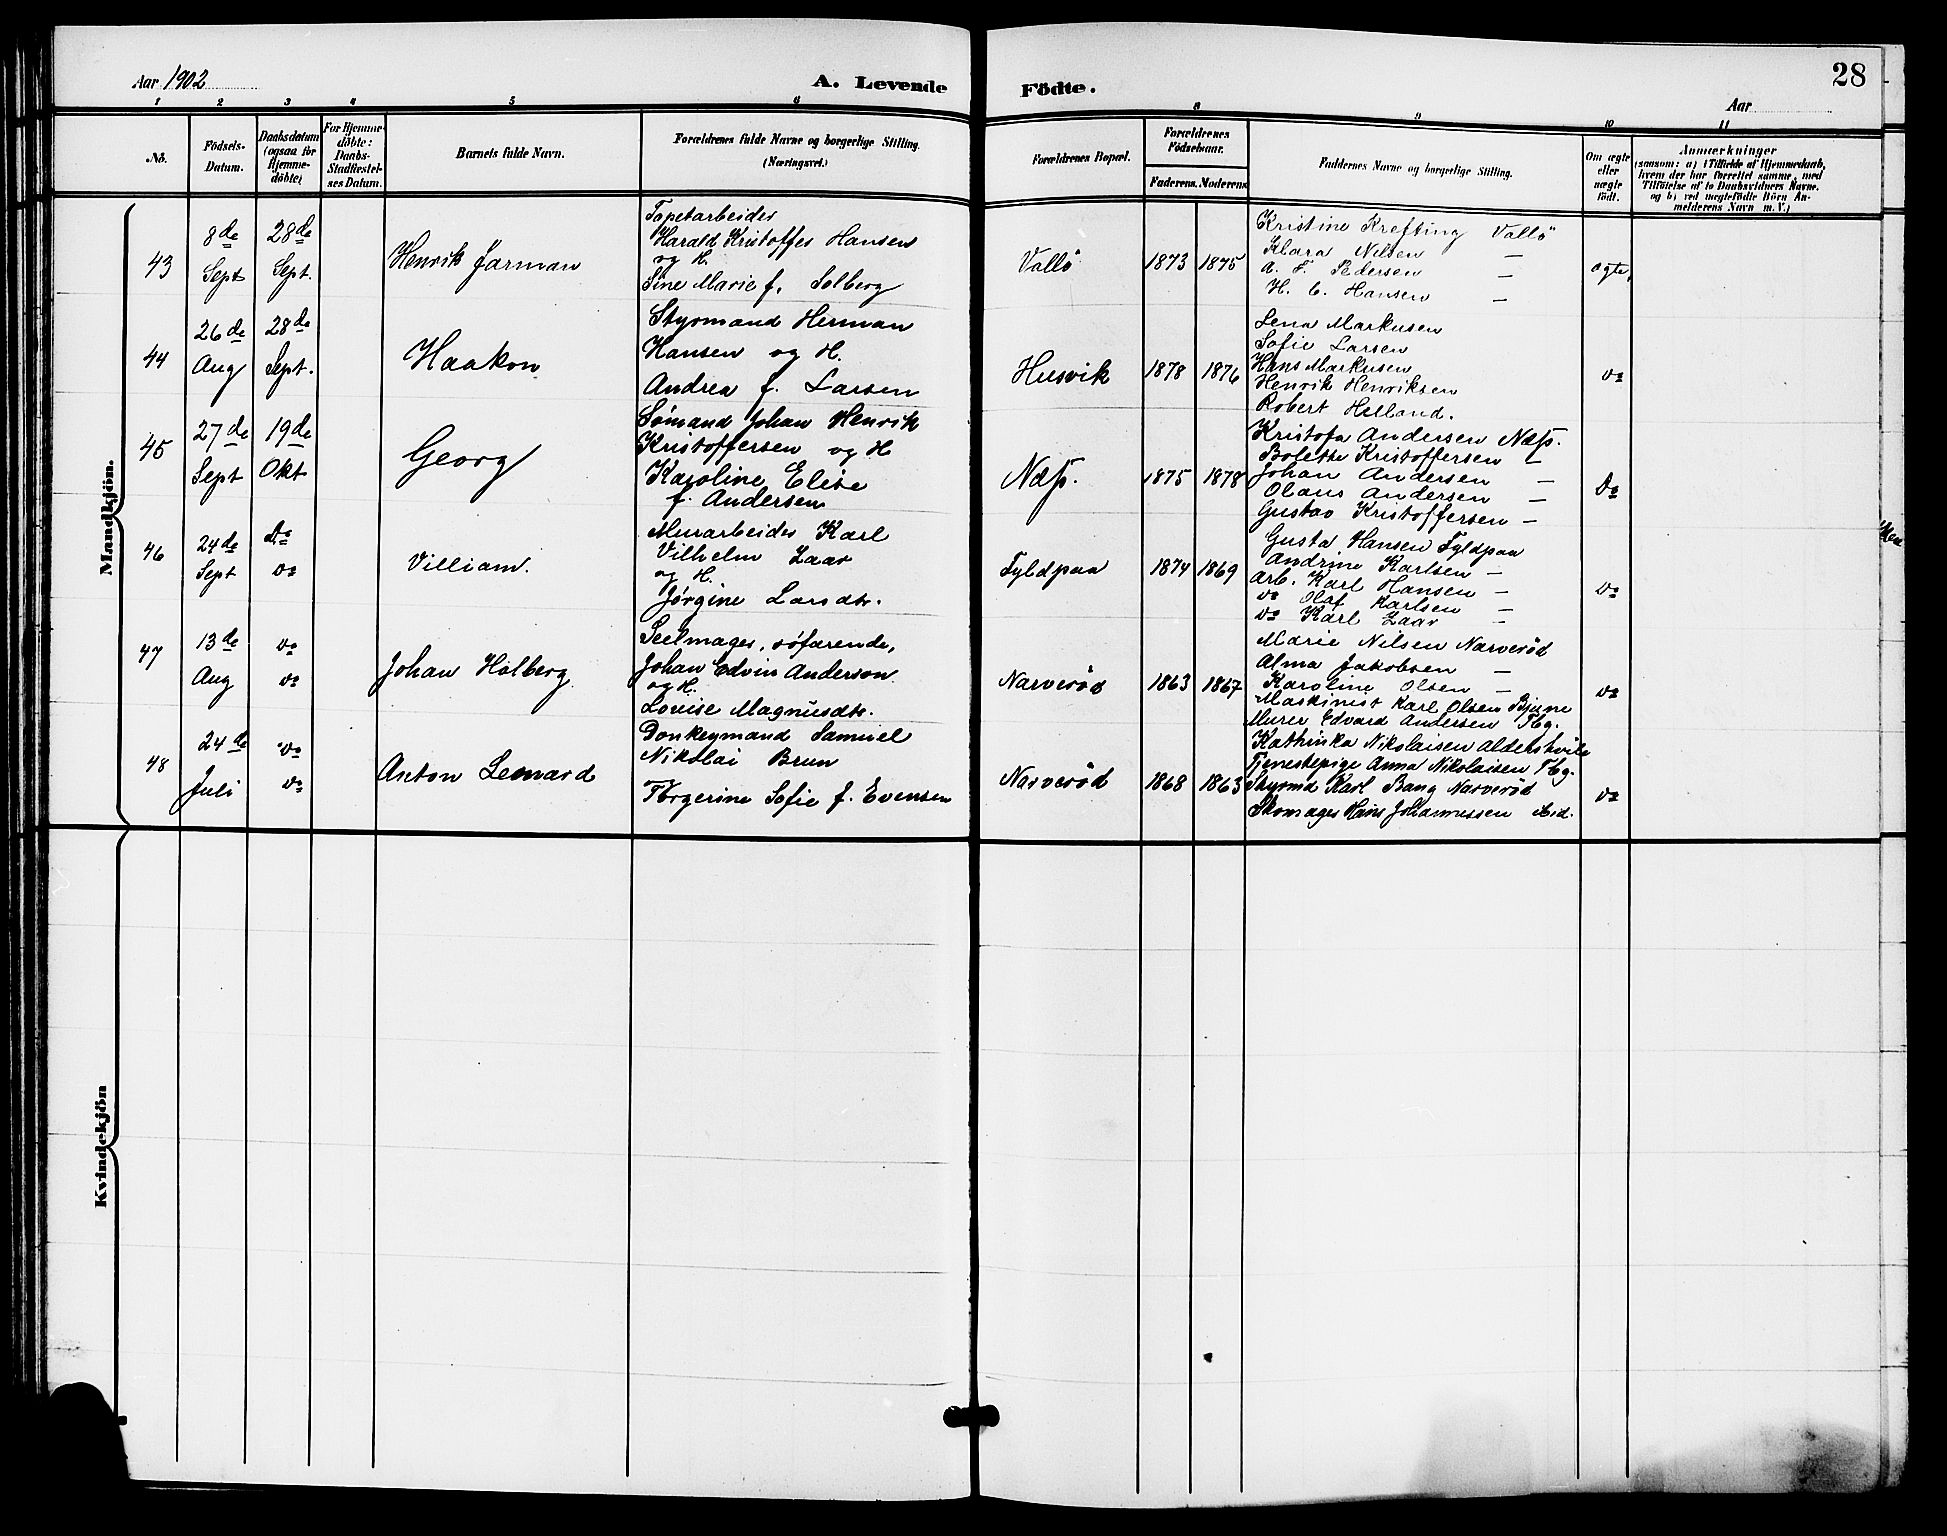 Aar 1902
A. Levende
Födte.
28
Aar
1 2 3 4 5 6 8 9 10 11
No.
Födsels-
Datum.
Daabsdatum
(ogsaa for
Hjemme-
döbte)
For Hjemme-
döbte:
Daabs-
Stadfæstel-
ses Datum.
Barnets fulde Navn.
Forældrenes fulde Navne og borgerlige Stilling.
(Næringsvei.)
Forældrenes Bopæl.
Forældrenes
Födselsaar.
Faderens. Moderens
Faddernes Navne og borgerlige Stilling.
Om ægte
eller
uægte
födt.
Anmærkninger
(saasom: a) i Tilfælde af Hjemmedaab,
hvem der har forrettet samme, med
Tilföielse af to Daabsvidners Navne.
og b) ved uægtefödte Börn An-
melderens Navn m. V.)
Mandkjön.
43
8de
Sept
28de
Sept.
Henrik Jarman
Tapetarbeider
Harald Kristoffer Hansen
og H.
Sine Marie f. Solberg
Vallö
1873 1875
Kristine Krefting Vallö
Klara Nilsen —
A. F. Pedersen —
H. C. Hansen —
ægte
44
26de
Aug
28de
Sept.
Haakon
Styrmand Herman
Hansen og H.
Andrea f. Larsen
Husvik
1878 1876
Lena Markusen
Sofie Larsen
Hans Markusen
Henrik Henriksen
Robert Helland.
do
45
27de
Sept
19de
Okt
Georg
Sømand Johan Henrik
Kristoffersen og H
Karoline Elise
f. Andersen
Næss.
1875 1878
Kristofa Andersen Næss.
Bolette Kristoffersen —
Johan Andersen —
Olaus Andersen —
Gustav Kristoffersen —
Do
46
24de
Sept
Do
do
Villiam.
Murarbeider Karl
Vilhelm Zaar
og H.
Jørgine Larsdtr.
Fyldpaa
1874 1869
Gusta Hansen Fyldpaa
Andrine Karlsen —
Arb. Karl Hansen —
do Olaf Karlsen —
do Karl Zaar —
do
47
13de
Aug
do
do
Johan Holberg
Seelmager, søfarende,
Johan Edvin Anderson
og H.
Lovise Magnusdtr.
Narverød
1863 1867
Marie Nilsen Narverød
Alma Jakobsen —
Karoline Olsen —
Maskinist Karl Olsen Bjune
Murer Edvard Andersen Tbg.
do
48
24de
Juli
do
do
Anton Lennard
Donkeymand Samuel
Nikolai Brun
Thrgerine Sofie f. Evensen
Narverød
1868 1863
Kathinka Nikolaisen Aldershvile
Tjenestepige Anna Nikolaisen Tbg.
Styrmd Karl Bang Narverød
Skomager Hans Johannessen
do
Kvindekjön